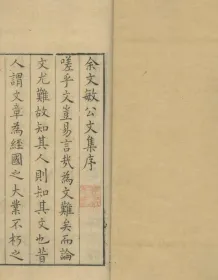 余文敏公文集序
嗟乎文豈易言哉為文難矣而論
文尤難故知其人則知其文也昔
人謂文章為經國之大業不朽之